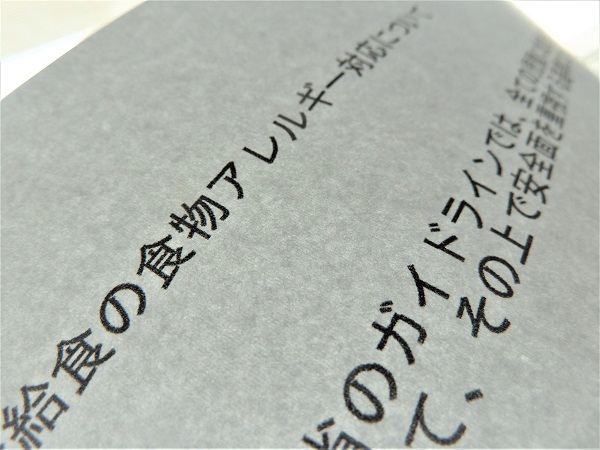 給食の食物アレルギー対応について
省のガイドラインでは、全ての
て、その上で安全面を重視する